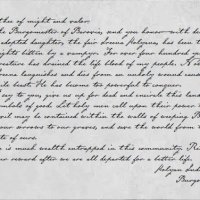 of might and valor:
the Burgomaster of Barovia, send you honor—with de
adopted daughter, the fair Ireena Kolyana, has been t
nights bitten by a vampyr. For over four hundred ye
creature has drained the life blood of my people. N
Ireena languishes and dies from an unholy wound caused
vile beast. He has become too powerful to conquer.
I say to you, give us up for dead and encircle this land
symbols of good. Let holy men call upon their power t
evil may be contained within the walls of weeping B
our sorrows to our graves, and save the world from t
fate of ours.
is much wealth entrapped in this community. R
our reward after we are all departed for a better life.
Kolyan Ind
Burgo